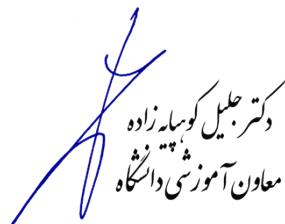 دکتر جلیل کوسپایه زاده
معاون آموزشی دانشگاه